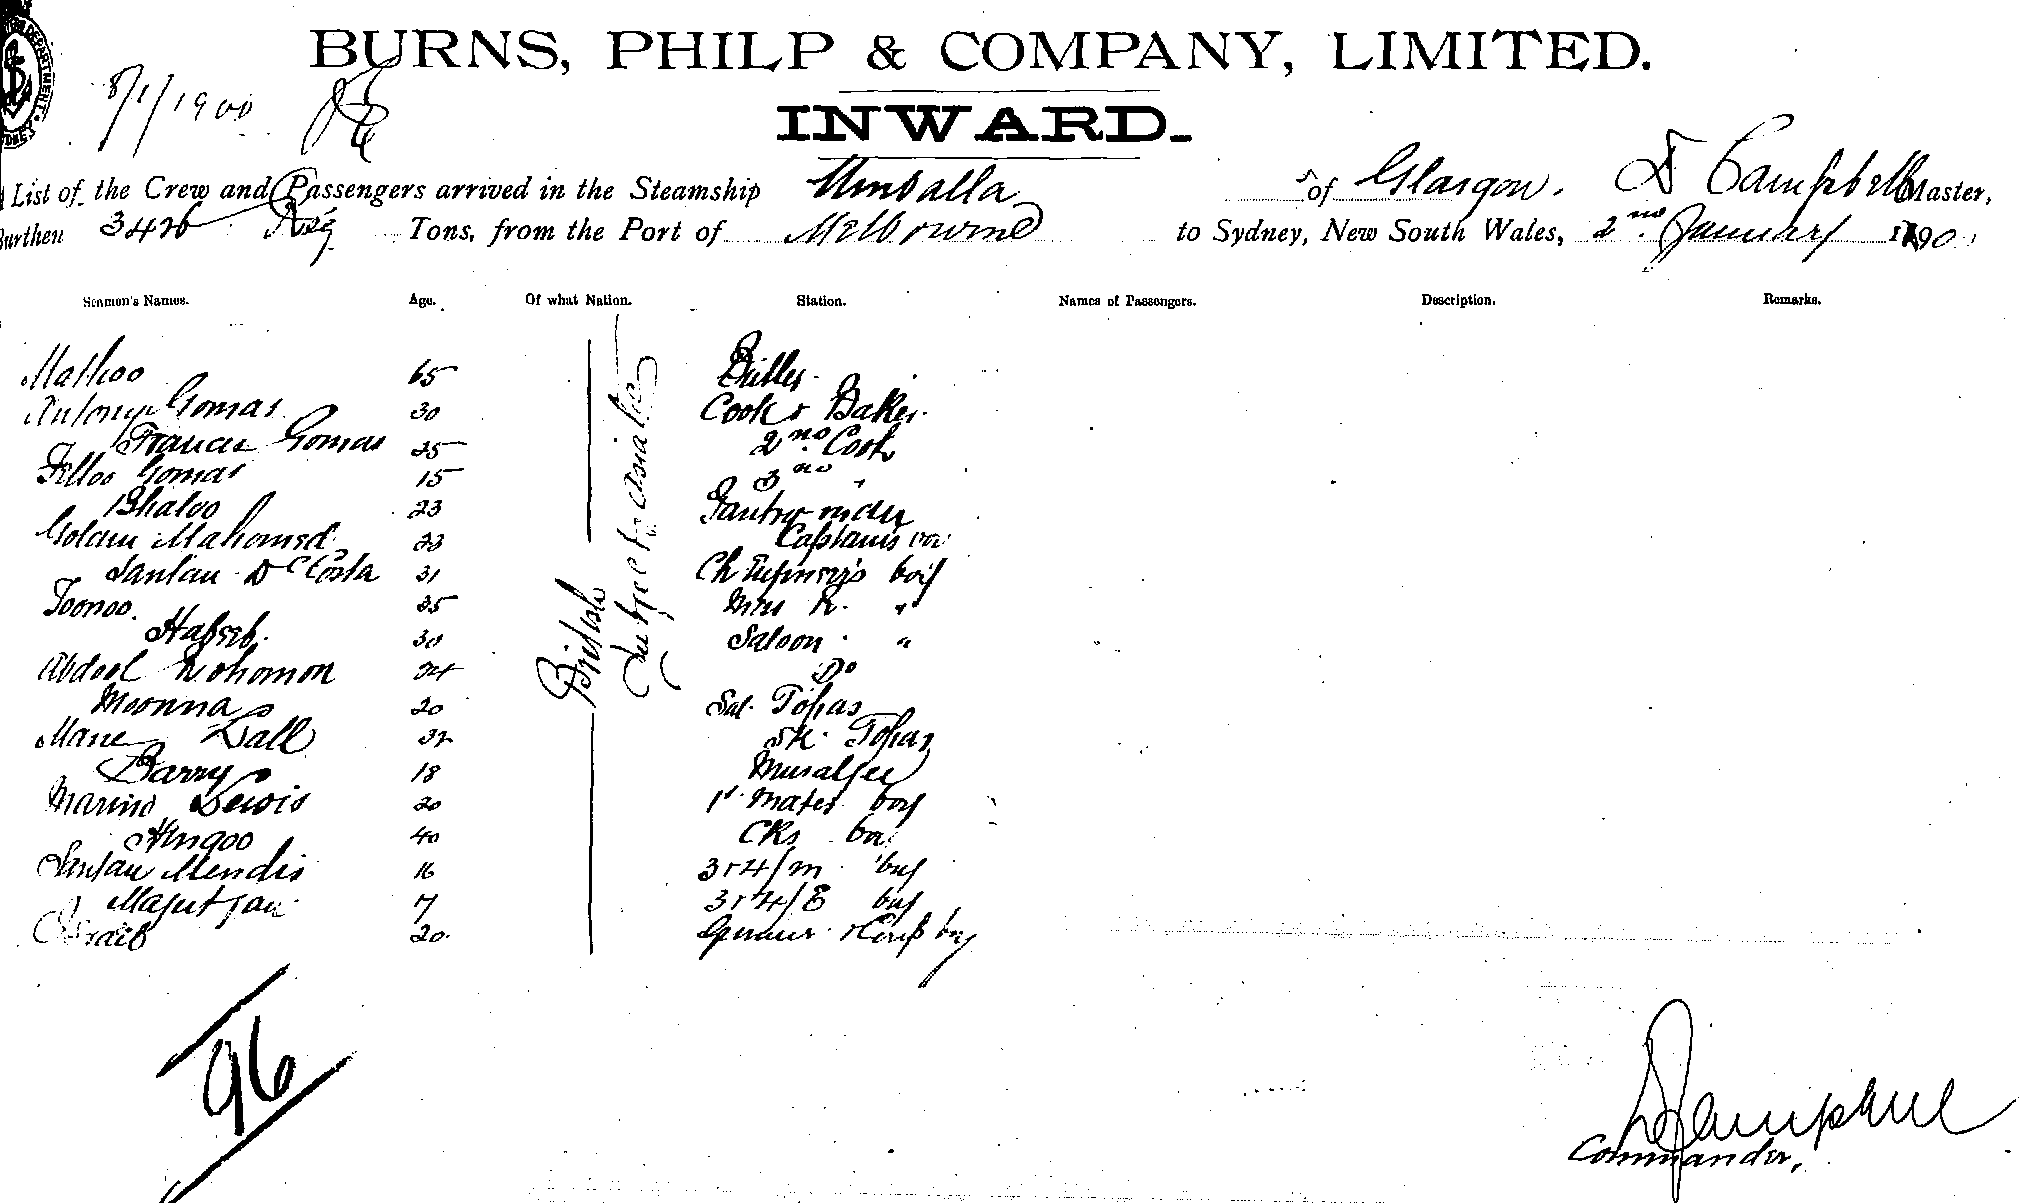 BURNS, PHILP & COMPANY, LIMITED.
8/1/1900
INWARD.
List of the Crew and Passengers arrived in the Steamship Umballa of Glasgow. D Campbell Master,
Burthen 3426 Reg Tons, from the Port of Melbourne to Sydney, New South Wales, 2nd January 190
Seamen's Names. Age. Of what Nation. Station. Names of Passengers. Description. Remarks.
British Subject Asiatics
65 Butler
Antony Gomas 30 Cook & Baker.
Francis Gomas 25 2nd Cook
Gomas 15 3rd "
Bhaloo 23 Pantry
Golam Mahomed 23 Captains boy
Santan D'Costa 31 Ch Engineer's boy
Toonoo. 35 Mess R. "
30 Saloon "
Abdool Rohomon 24 Do
Moonna 20 Sal. Topas
Lall 32 Topas
Barry 18 Musalgee
Marino Lewis 20 1st Mates boy
40 CKs boy
Santan Mendis 16 3&4/m boy
3&4/E boy
20 boy
96
D Campbell
Commander,